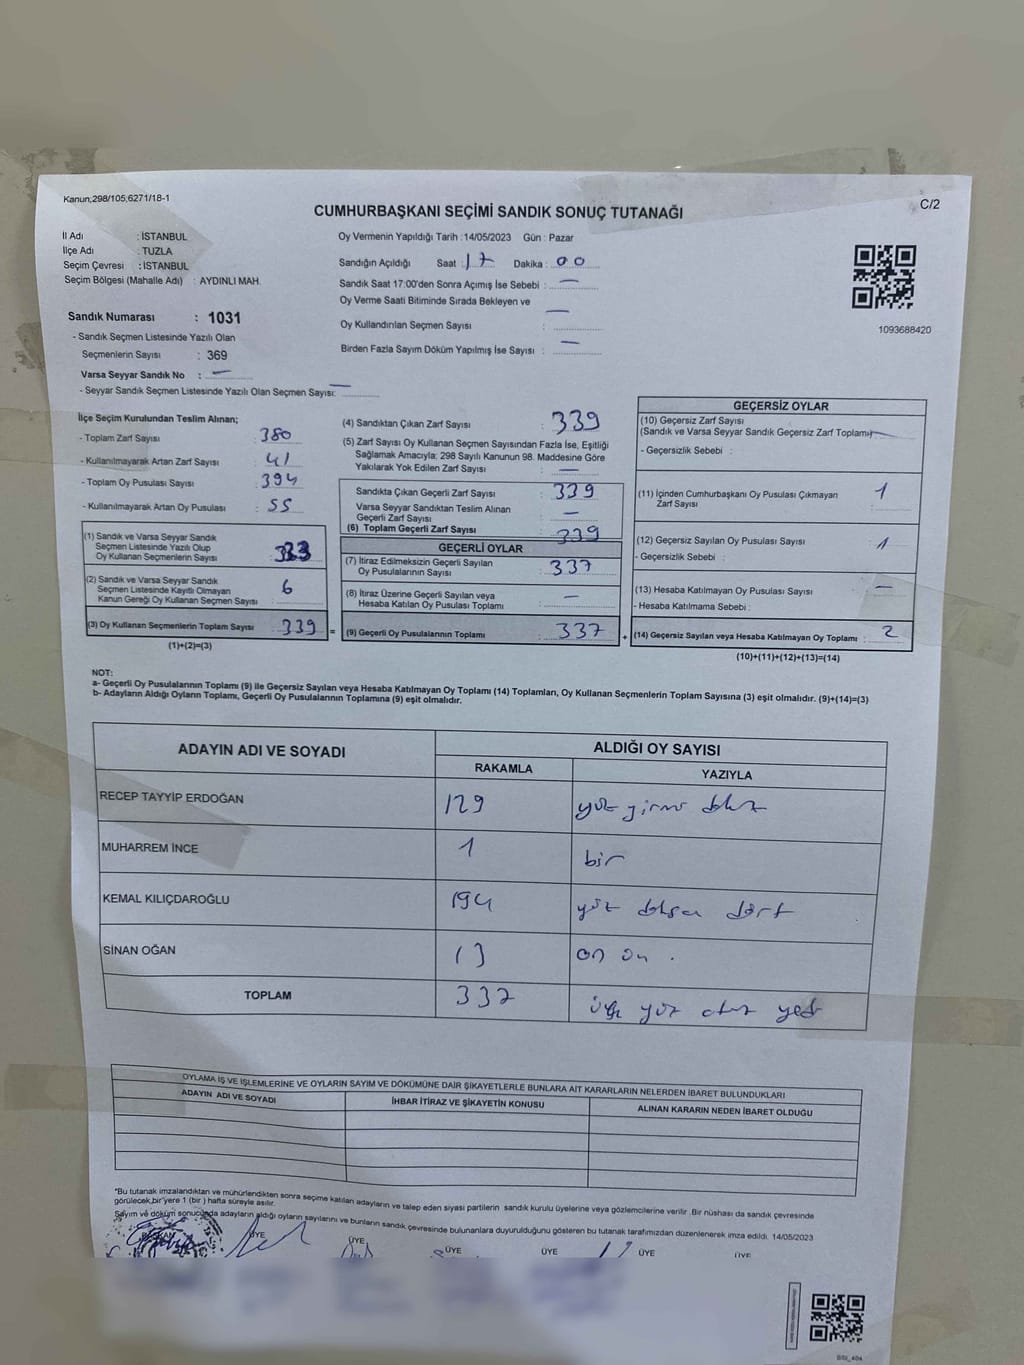 Kanun;298/105;6271/18-1
C/2
CUMHURBAŞKANI SEÇİMİ SANDIK SONUÇ TUTANAĞI
İl Adı : İSTANBUL
İlçe Adı : TUZLA
Seçim Çevresi : İSTANBUL
Seçim Bölgesi (Mahalle Adı) : AYDINLI MAH.
Sandık Numarası : 1031
- Sandık Seçmen Listesinde Yazılı Olan
Seçmenlerin Sayısı : 369
Varsa Seyyar Sandık No : —
- Seyyar Sandık Seçmen Listesinde Yazılı Olan Seçmen Sayısı: —
Oy Vermenin Yapıldığı Tarih :14/05/2023 Gün : Pazar
Sandığın Açıldığı Saat : 17 Dakika : 00
Sandık Saat 17:00'den Sonra Açımış İse Sebebi : —
Oy Verme Saati Bitiminde Sırada Bekleyen ve
Oy Kullandırılan Seçmen Sayısı : —
Birden Fazla Sayım Döküm Yapılmış İse Sayısı : —
1093688420
İlçe Seçim Kurulundan Teslim Alınan;
- Toplam Zarf Sayısı : 380
- Kullanılmayarak Artan Zarf Sayısı : 41
- Toplam Oy Pusulası Sayısı : 394
- Kullanılmayarak Artan Oy Pusulası : 55
(1) Sandık ve Varsa Seyyar Sandık
Seçmen Listesinde Yazılı Olup
Oy Kullanan Seçmenlerin Sayısı : 333
(2) Sandık ve Varsa Seyyar Sandık
Seçmen Listesinde Kayıtlı Olmayan
Kanun Gereği Oy Kullanan Seçmen Sayısı : 6
(3) Oy Kullanan Seçmenlerin Toplam Sayısı : 339 =
(1)+(2)=(3)
(4) Sandıktan Çıkan Zarf Sayısı : 339
(5) Zarf Sayısı Oy Kullanan Seçmen Sayısından Fazla İse, Eşitliği
Sağlamak Amacıyla; 298 Sayılı Kanunun 98. Maddesine Göre
Yakılarak Yok Edilen Zarf Sayısı : —
Sandıkta Çıkan Geçerli Zarf Sayısı : 339
Varsa Seyyar Sandıktan Teslim Alınan
Geçerli Zarf Sayısı : —
(6) Toplam Geçerli Zarf Sayısı : 339
GEÇERLİ OYLAR
(7) İtiraz Edilmeksizin Geçerli Sayılan
Oy Pusulalarının Sayısı : 337
(8) İtiraz Üzerine Geçerli Sayılan veya
Hesaba Katılan Oy Pusulası Toplamı : —
(9) Geçerli Oy Pusulalarının Toplamı : 337 +
GEÇERSİZ OYLAR
(10) Geçersiz Zarf Sayısı
(Sandık ve Varsa Seyyar Sandık Geçersiz Zarf Toplamı) —
- Geçersizlik Sebebi :
(11) İçinden Cumhurbaşkanı Oy Pusulası Çıkmayan
Zarf Sayısı : 1
(12) Geçersiz Sayılan Oy Pusulası Sayısı : 1
- Geçersizlik Sebebi :
(13) Hesaba Katılmayan Oy Pusulası Sayısı : —
- Hesaba Katılmama Sebebi :
(14) Geçersiz Sayılan veya Hesaba Katılmayan Oy Toplamı : 2
(10)+(11)+(12)+(13)=(14)
NOT:
a- Geçerli Oy Pusulalarının Toplamı (9) ile Geçersiz Sayılan veya Hesaba Katılmayan Oy Toplamı (14) Toplamları, Oy Kullanan Seçmenlerin Toplam Sayısına (3) eşit olmalıdır. (9)+(14)=(3)
b- Adayların Aldığı Oyların Toplamı, Geçerli Oy Pusulalarının Toplamına (9) eşit olmalıdır.
ADAYIN ADI VE SOYADI
ALDIĞI OY SAYISI
RAKAMLA YAZIYLA
RECEP TAYYİP ERDOĞAN 129 yüz yirmi dokuz
MUHARREM İNCE 1 bir
KEMAL KILIÇDAROĞLU 194 yüz doksan dört
SİNAN OĞAN 13 on
TOPLAM 337 üç yüz otuz yedi
OYLAMA İŞ VE İŞLEMLERİNE VE OYLARIN SAYIM VE DÖKÜMÜNE DAİR ŞİKAYETLERLE BUNLARA AİT KARARLARIN NELERDEN İBARET BULUNDUKLARI
ADAYIN ADI VE SOYADI İHBAR İTİRAZ VE ŞİKAYETİN KONUSU ALINAN KARARIN NEDEN İBARET OLDUĞU
*Bu tutanak imzalandıktan ve mühürlendikten sonra seçime katılan adayların ve talep eden siyasi partilerin sandık kurulu üyelerine veya gözlemcilerine verilir .Bir nüshası da sandık çevresinde
görülecek,bir yere 1 (bir ) hafta süreyle asılır.
Sayım ve döküm sonucunda adayların aldığı oyların sayılarını ve bunların sandık çevresinde bulunanlara duyurulduğunu gösteren bu tutanak tarafımızdan düzenlenerek imza edildi. 14/05/2023
BAŞKAN ÜYE ÜYE ÜYE ÜYE ÜYE ÜYE